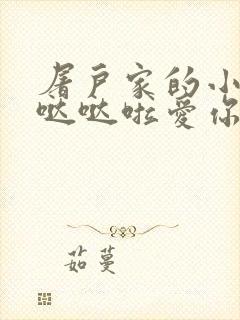 屠户家的小
哒哒啦爱你
茹蔓